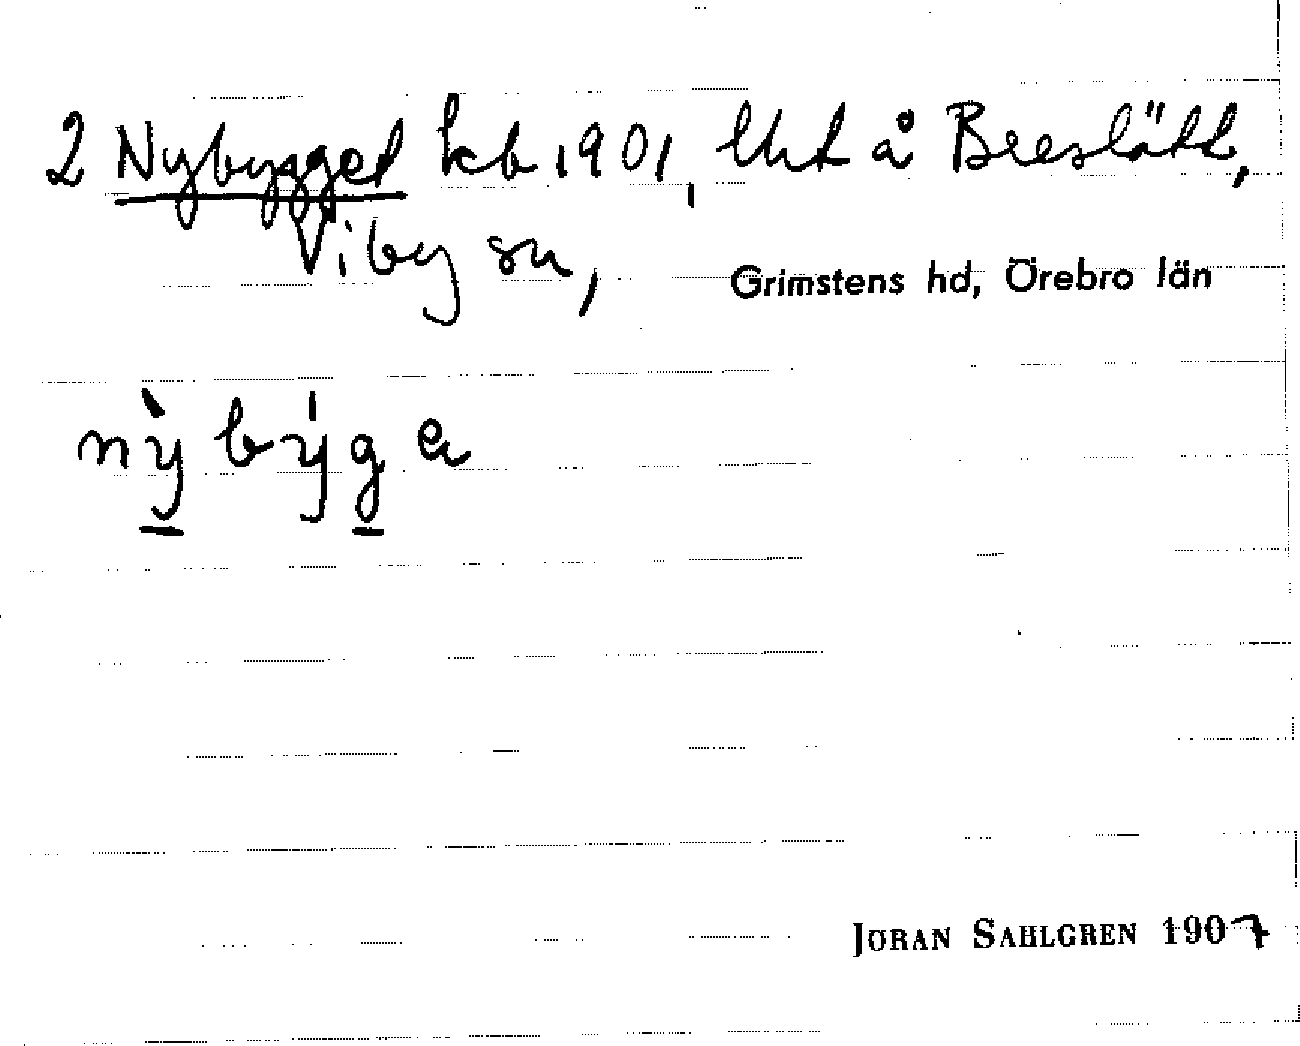 2 Nybygget kb 1901, lht å Breslätt,
Viby sn,
Grimstens hd, Örebro län
nỳbýga
JÖRAN SAHLGREN 1907